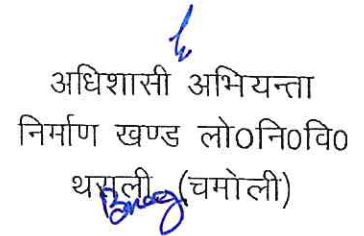 अधिशासी अभियन्ता
निर्माण खण्ड लो०नि०वि०
थराली (चमोली)